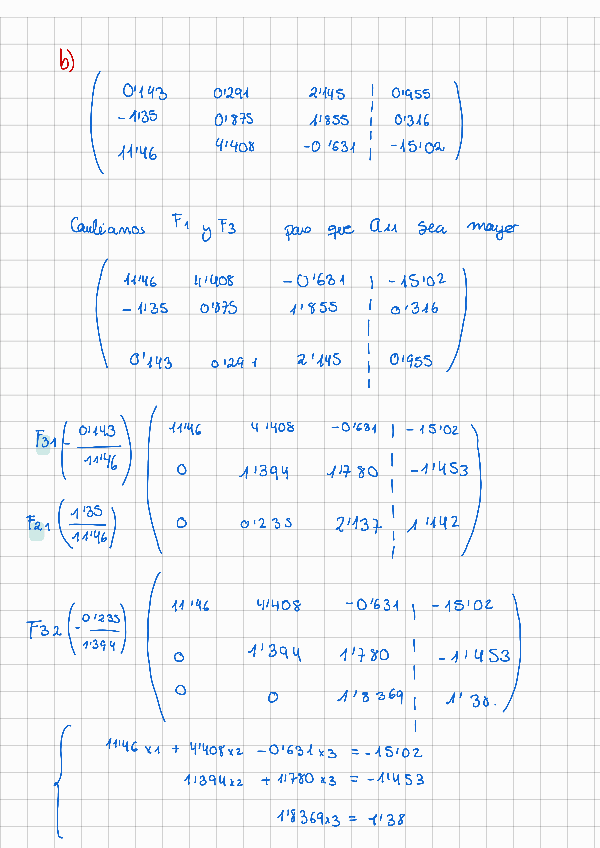 b)
0'143 0'291 2'145 0'955
-1'35 0'875 1'855 0'316
11'46 4'408 -0'631 -15'02
F1 y F3 que a11 sea mayor
11'46 4'408 -0'631 -15'02
-1'35 0'875 1'855 0'316
0'143 0'291 2'145 0'955
F31 (-0'143/11'46) 11'46 4'408 -0'631 -15'02
0 1'394 1'780 -1'453
F21 (1'35/11'46) 0 0'235 2'137 1'142
F32 (-0'235/1'394) 11'46 4'408 -0'631 -15'02
0 1'394 1'780 -1'453
0 0 1'8369 1'38.
11'46x1 + 4'408x2 -0'631x3 = -15'02
1'394x2 + 1'780x3 = -1'453
1'8369x3 = 1'38